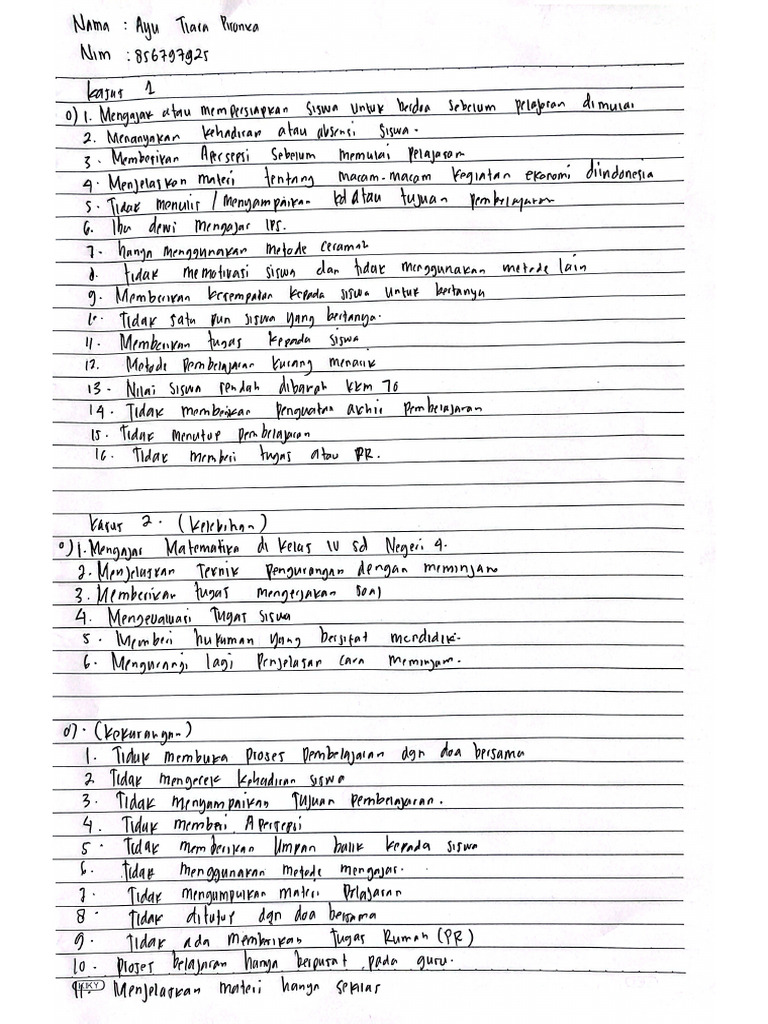 Nama : Ayu Tiara Pironka
Nim : 856797925
Kasus 1
a) 1. Mengajak atau mempersiapkan siswa untuk berdoa sebelum pelajaran dimulai
2. Menanyakan kehadiran atau absensi siswa.
3. Memberikan Apersepsi sebelum memulai pelajaran
4. Menjelaskan materi tentang macam-macam kegiatan ekonomi diindonesia
5. Tidak menulis / menyampaikan kd atau tujuan pembelajaran
6. Ibu dewi mengajar IPS.
7. hanya menggunakan metode ceramah
8. tidak memotivasi siswa dan tidak menggunakan metode lain
9. Memberikan kesempatan kepada siswa untuk bertanya
10. Tidak satu pun siswa yang bertanya.
11. Memberikan tugas kepada siswa
12. Metode pembelajaran kurang menarik
13. Nilai siswa rendah dibawah kkm 70
14. Tidak memberikan penguatan akhir pembelajaran
15. Tidak menutup pembelajaran
16. Tidak memberi tugas atau PR.
Kasus 2. (Kelebihan)
a) 1. Mengajar Matematika di kelas IV sd Negeri 4.
2. Menjelaskan Teknik pengurangan dengan meminjam
3. Memberikan tugas mengerjakan soal
4. Mengevaluasi Tugas siswa
5. Memberi hukuman yang bersifat mendidik.
6. Mengurangi lagi Penjelasan cara meminjam.
a). (Kekurangan)
1. Tidak membuka proses pembelajaran dgn doa bersama
2 Tidak mengecek kehadiran siswa
3. Tidak menyampaikan Tujuan pembelajaran.
4. Tidak memberi Apersepsi
5. Tidak memberikan Umpan balik kepada siswa
6. tidak menggunakan metode mengajar.
7. Tidak mengumpulkan materi Pelajaran
8. Tidak ditutup dgn doa bersama
9. Tidak ada memberikan Tugas Rumah (PR)
10. Proses belajaran hanya berpusat pada guru.
11. Menjelaskan materi hanya sekilas
KKY